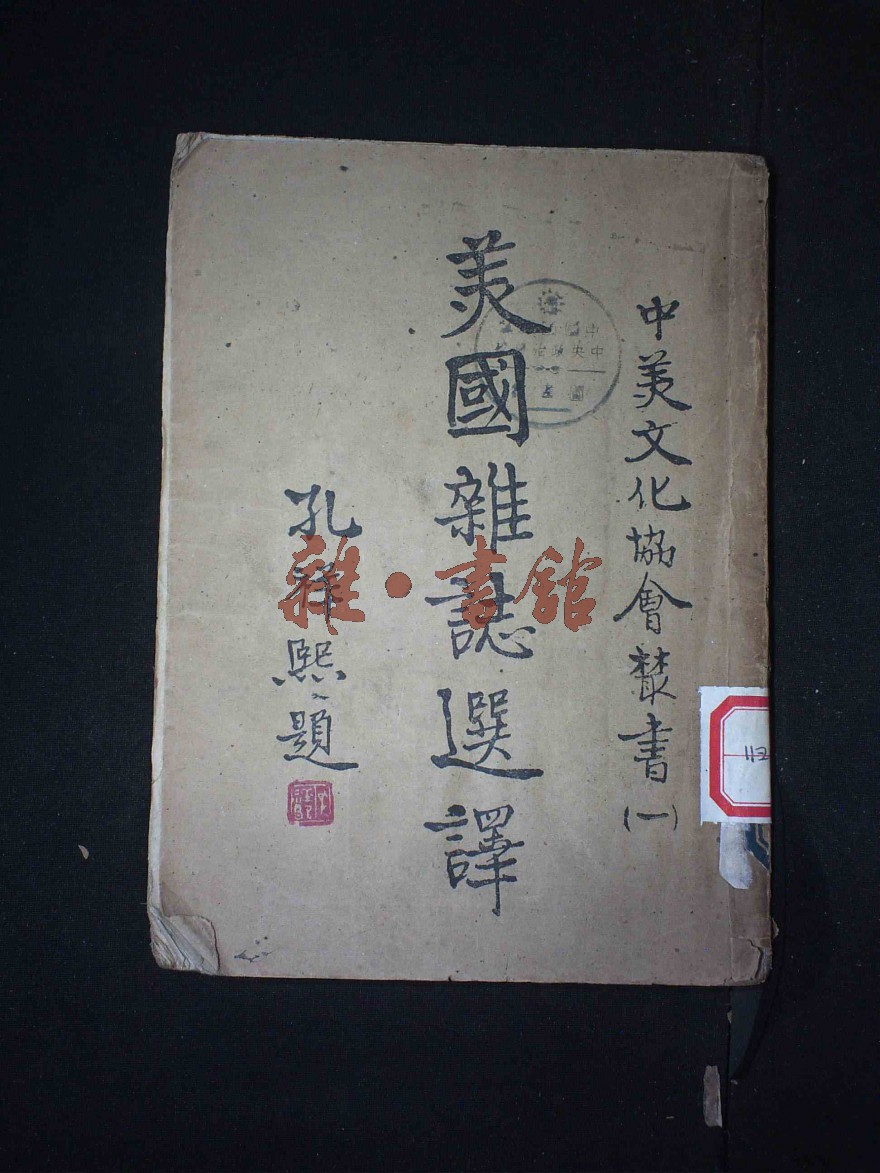 中美文化協會叢書(一)
美國雜誌選譯
孔祥熙題
雜·書館
112